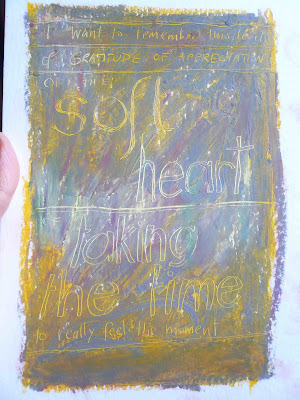 I want to remember this feeling
of GRATITUDE OF APPRECIATION
OF THE
soft
heart
taking
the time
to really feel this moment